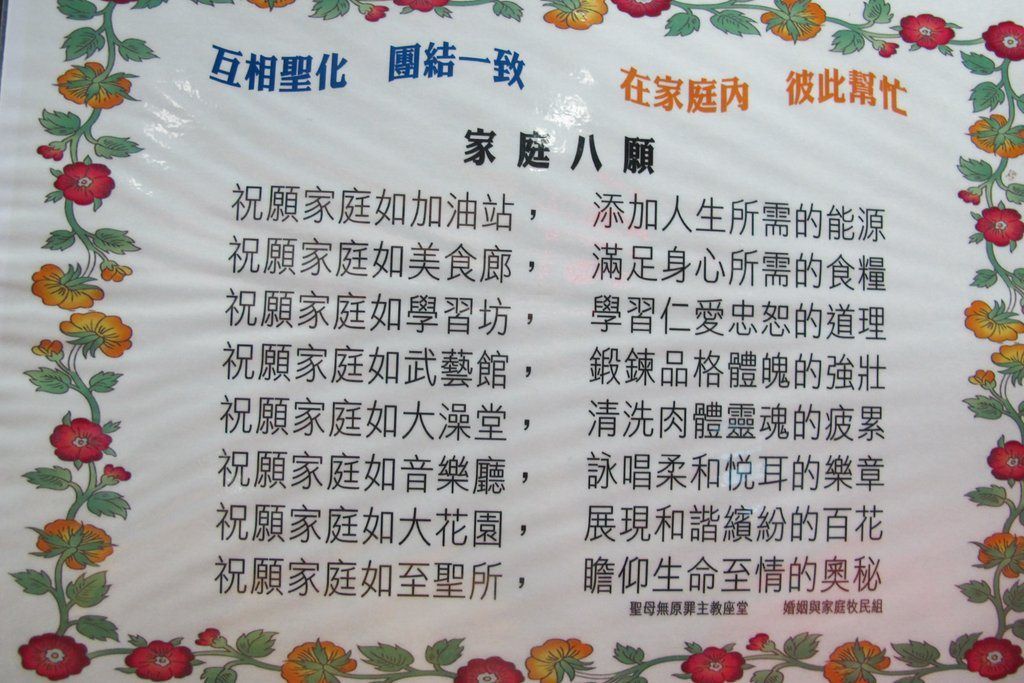 互相聖化 團結一致 在家庭內 彼此幫忙
家庭八願
祝願家庭如加油站， 添加人生所需的能源
祝願家庭如美食廊， 滿足身心所需的食糧
祝願家庭如學習坊， 學習仁愛忠恕的道理
祝願家庭如武藝館， 鍛鍊品格體魄的強壯
祝願家庭如大澡堂， 清洗肉體靈魂的疲累
祝願家庭如音樂廳， 詠唱柔和悅耳的樂章
祝願家庭如大花園， 展現和諧繽紛的百花
祝願家庭如至聖所， 瞻仰生命至情的奧秘
聖母無原罪主教座堂 婚姻與家庭牧民組